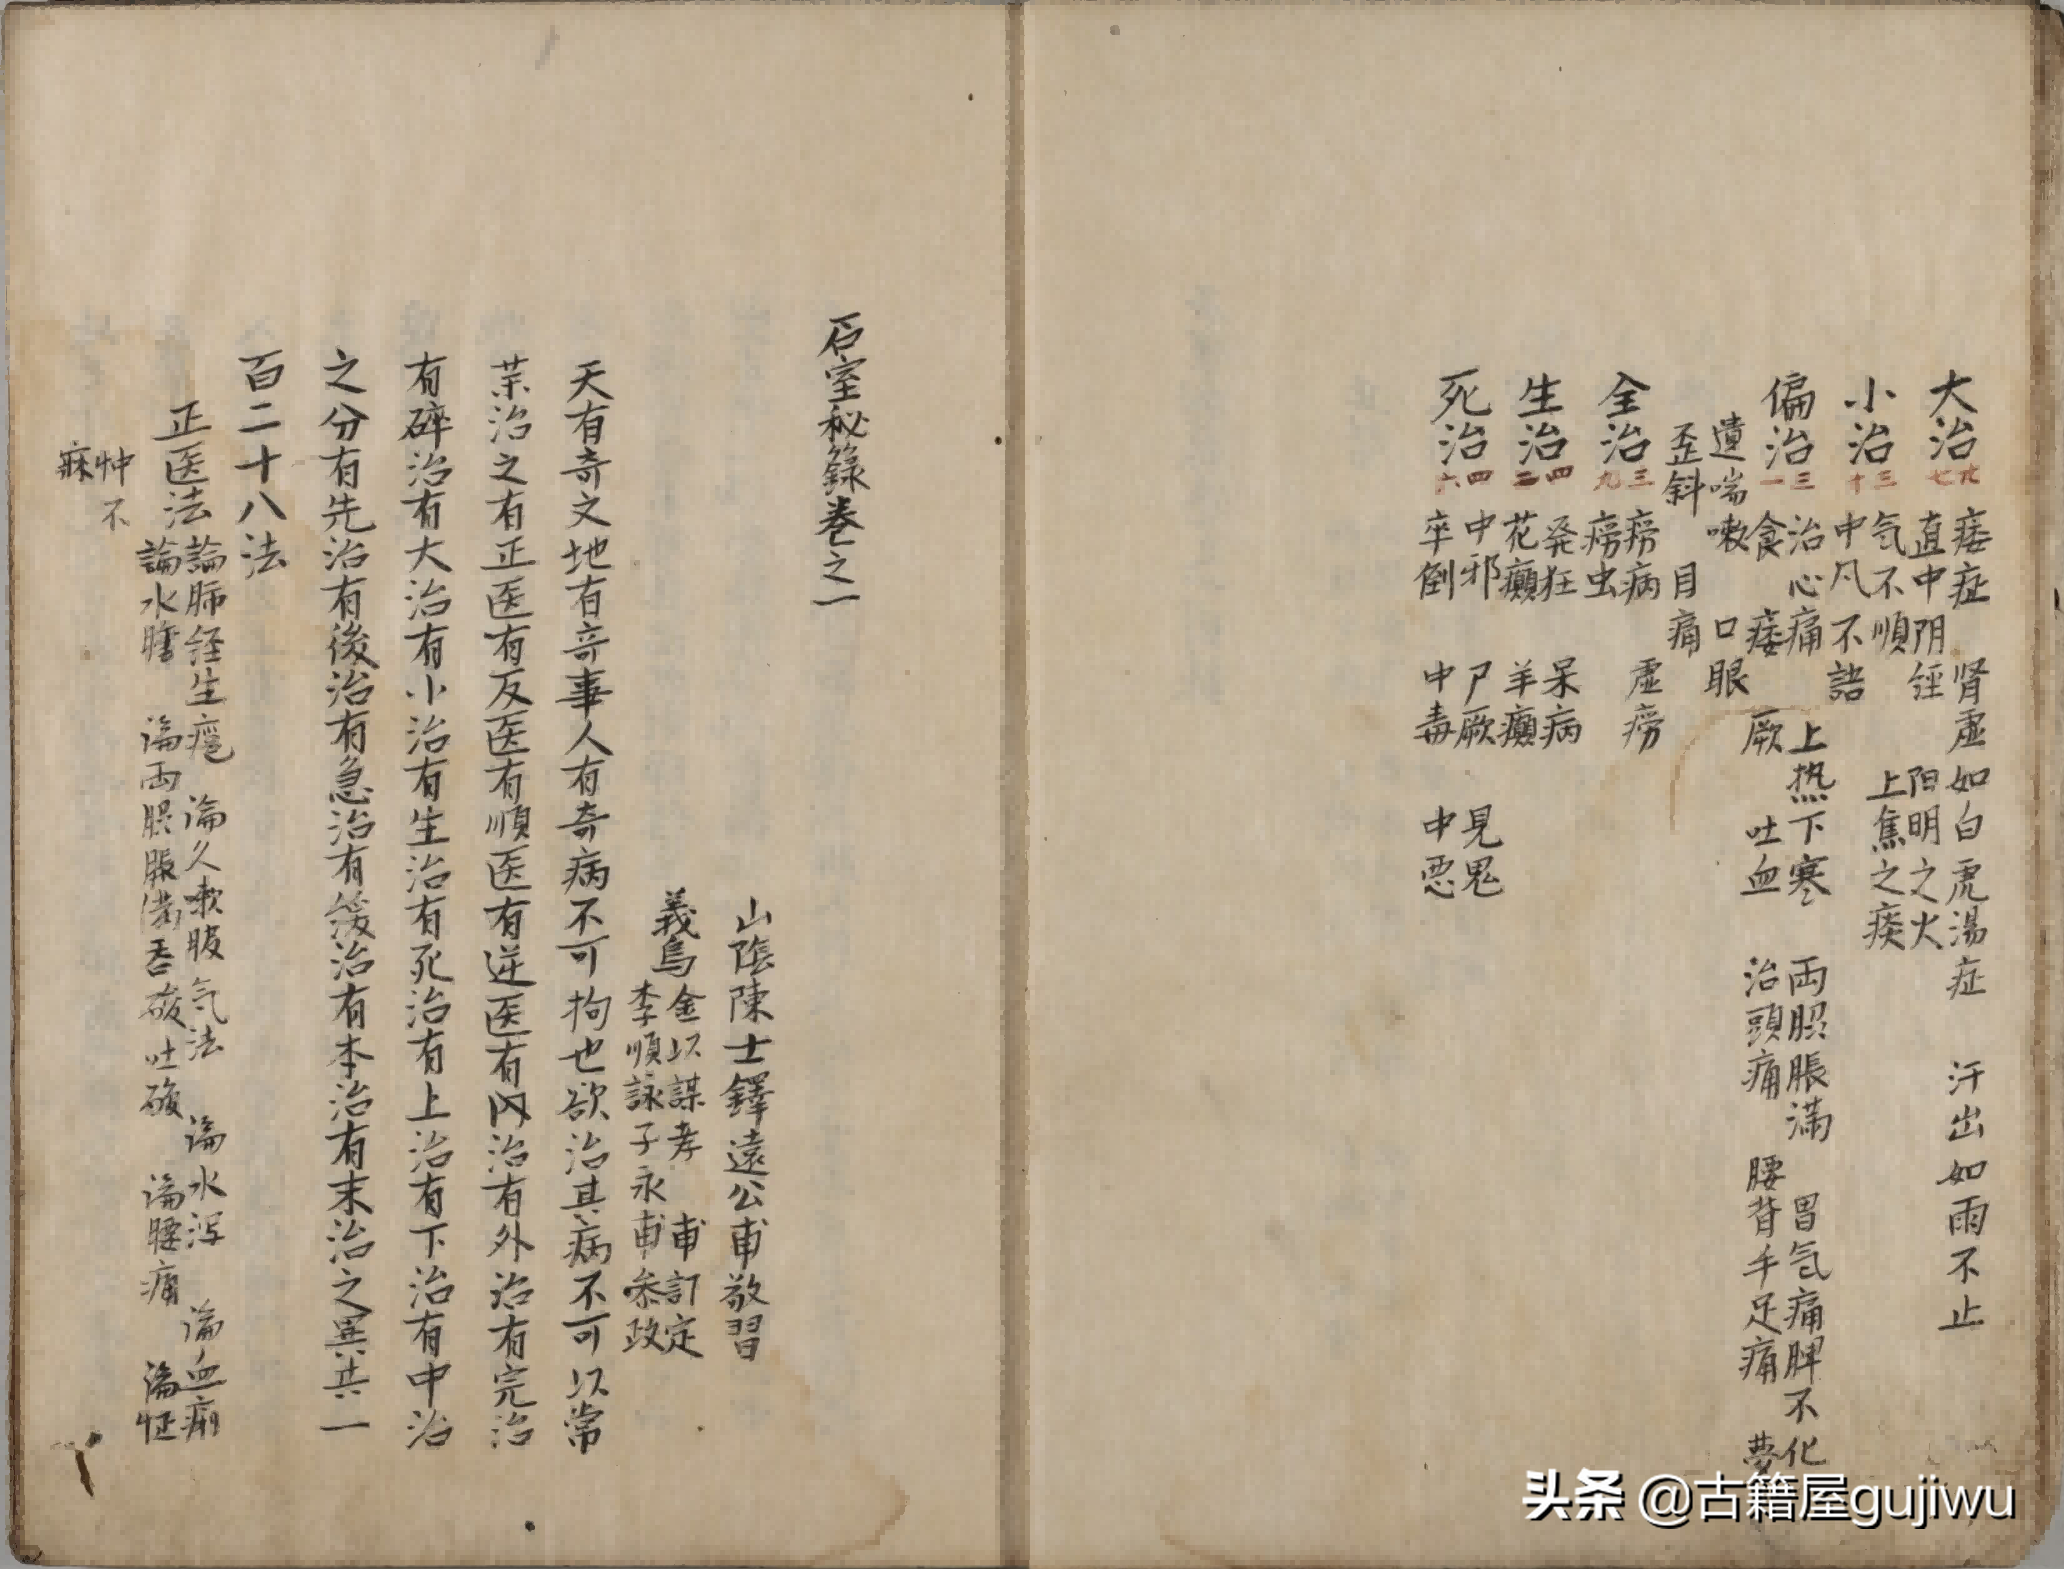 大治 廿七 痿症 肾虚如白虎湯症 汗出如雨不止
直中阴经 阳明之火
小治 三十 气不順 上焦之痰
中风不語
偏治 三一 治心痛 上热下寒 両脇脹滿 胃气痛脾不化
食 痿 厥 吐血 治頭痛 腰背手足痛 夢
遺喘嗽 口眼
歪斜 目痛
全治 三九 痨病 虚痨
痨虫
生治 四二 発狂 呆病
花癲 羊癲
死治 四六 中邪 尸厥 見鬼
卒倒 中毒 中悪
石室秘籙卷之一
山陰陳士鐸遠公甫敬習
義烏 金以謀孝 甫訂定
李順詠子永甫参政
天有奇文地有奇事人有奇病不可拘也欲治其病不可以常
葉治之有正医有反医有順医有逆医有内治有外治有完治
有碎治有大治有小治有生治有死治有上治有下治有中治
之分有先治有後治有急治有緩治有本治有末治之異共一
百二十八法
正医法 論肺経生瘡 論久嗽服气法 論水泻 論血痢
論水膳 論両脇脹満吞酸吐酸 論腰痛 論怔
忡 不
寐
头条 @古籍屋gujiwu